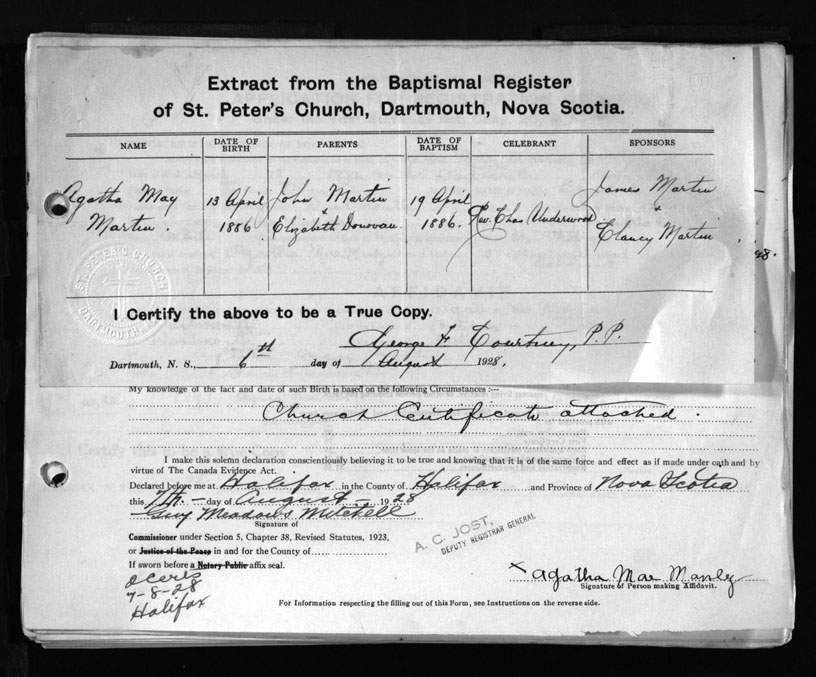 Extract from the Baptismal Register
of St. Peter's Church, Dartmouth, Nova Scotia.
NAME DATE OF BIRTH PARENTS DATE OF BAPTISM CELEBRANT SPONSORS
Agatha May 13 April John Martin 19 April James Martin
Martin. 1886 & Elizabeth Donovan 1886. Rev. Chas Underwood & Clancy Martin
ST. PETER'S CHURCH
DARTMOUTH, N.S.
I Certify the above to be a True Copy.
George F Courtney, P.P.
Dartmouth, N. S., 6th day of August 1928.
My knowledge of the fact and date of such Birth is based on the following Circumstances :—
Church Certificate attached.
I make this solemn declaration conscientiously believing it to be true and knowing that it is of the same force and effect as if made under oath and by
virtue of The Canada Evidence Act.
Declared before me at Halifax in the County of Halifax and Province of Nova Scotia
this 7th day of August 1928
Guy Meadows Mitchell
Signature of
Commissioner under Section 5, Chapter 38, Revised Statutes, 1923,
or Justice of the Peace in and for the County of
If sworn before a Notary Public affix seal.
A. C. JOST,
DEPUTY REGISTRAR GENERAL
2 certs
7-8-28
Halifax
x Agatha Mae Manley
Signature of Person making Affidavit.
For Information respecting the filling out of this Form, see Instructions on the reverse side.